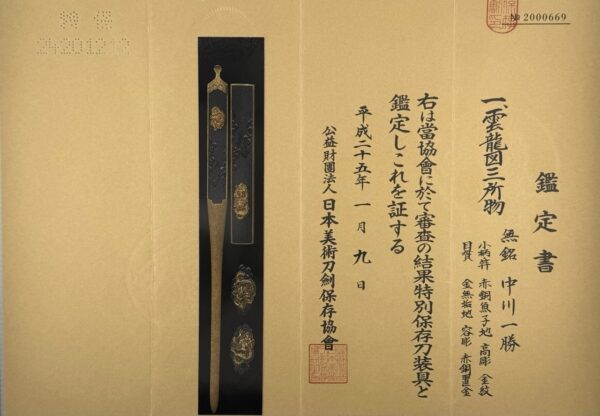 № 2000669
鑑定書
一、雲龍図三所物 無銘 中川一勝
小柄笄 赤銅魚子地 高彫 金紋
目貫 金無垢地 容彫 赤銅置金
右は當協會に於て審査の結果特別保存刀装具と
鑑定しこれを証する
平成二十五年一月九日
公益財團法人 日本美術刀劍保存協會